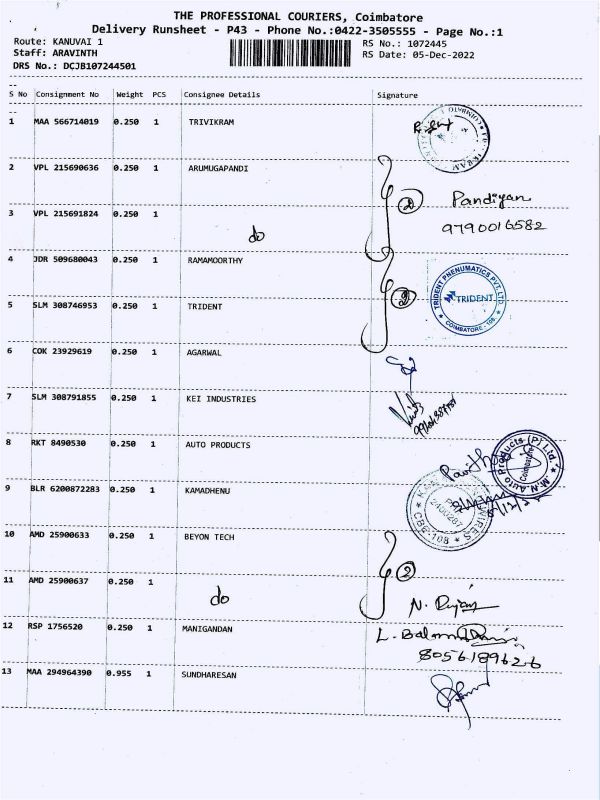 THE PROFESSIONAL COURIERS, Coimbatore
Delivery Runsheet - P43 - Phone No.:0422-3505555 - Page No.:1
Route: KANUVAI 1
RS No.: 1072445
Staff: ARAVINTH
RS Date: 05-Dec-2022
DRS No.: DCJB107244501
--
S No Consignment No Weight PCS Consignee Details Signature
--
1 MAA 566714019 0.250 1 TRIVIKRAM
2 VPL 215690636 0.250 1 ARUMUGAPANDI
2 Pandiyan
3 VPL 215691824 0.250 1 do
9790016582
4 JDR 509680043 0.250 1 RAMAMOORTHY
2
TRIDENT PNEUMATICS PVT. LTD.
TRIDENT
COIMBATORE - 108
5 SLM 308746953 0.250 1 TRIDENT
6 COK 23929619 0.250 1 AGARWAL
7 SLM 308791855 0.250 1 KEI INDUSTRIES
8 RKT 8490530 1 AUTO PRODUCTS
M.N. Auto Products (P) Ltd.
Coimbatore
9 BLR 6200872283 0.250 1 KAMADHENU
CBE-108
10 AMD 25900633 0.250 1 BEYON TECH
2
11 AMD 25900637 0.250 1 do
N.
12 RSP 1756520 0.250 1 MANIGANDAN
L.
8056189626
13 MAA 294964390 0.955 1 SUNDHARESAN